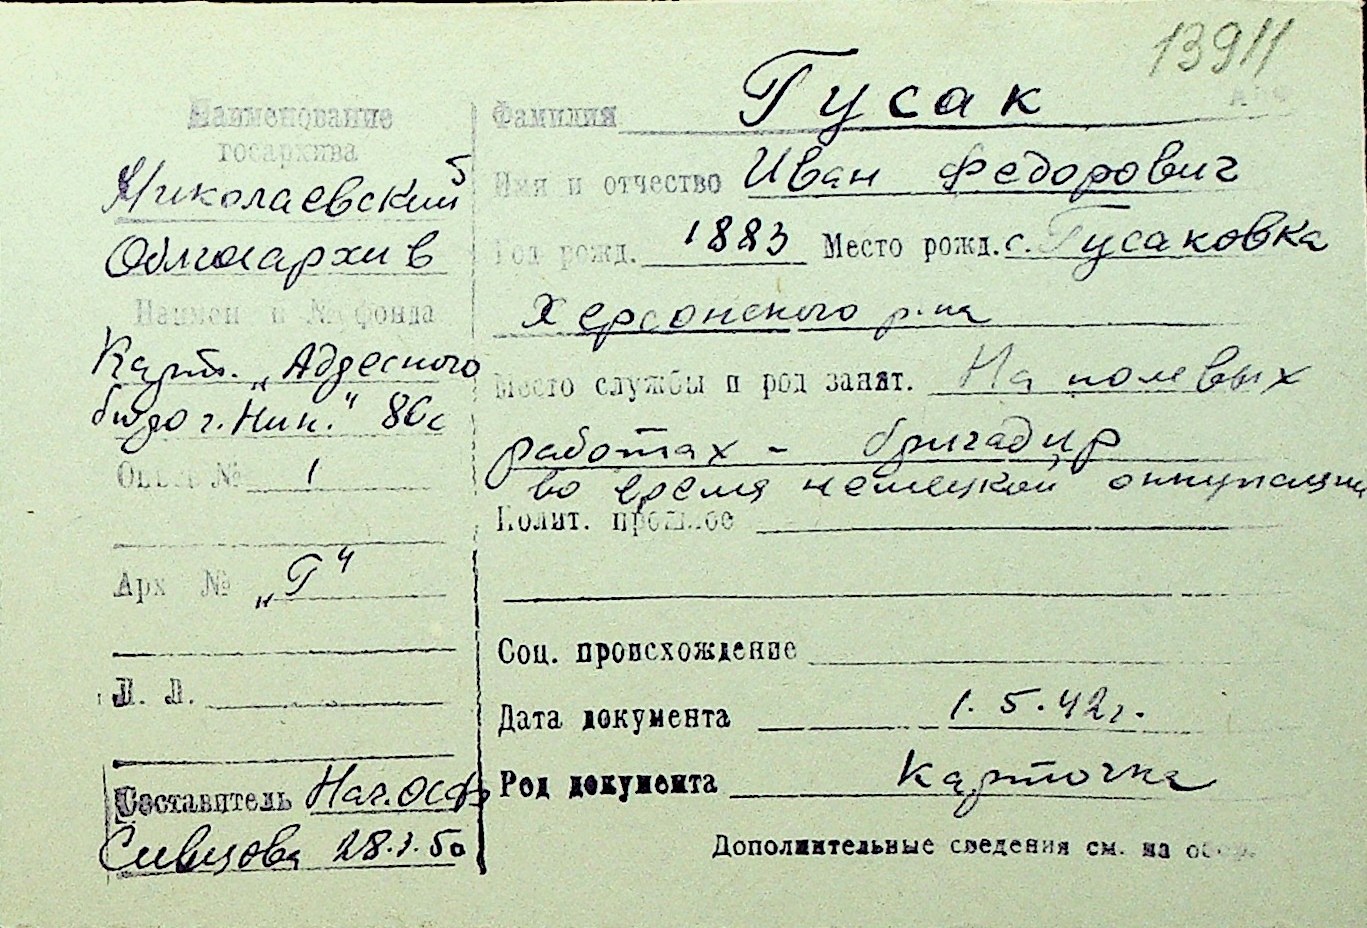 13911
Наименование
госархива
Николаевский
Облгосархив
Наимен и № фонда
Карт. „Адресного
бюро г. Ник." 86с
Опись № 1
Арх № „Г"
Л. Л.
Составитель Нач. ОСФ
Сивцова 28.1.50
Фамилия Гусак
Имя и отчество Иван Федорович
Год рожд. 1883 Место рожд. с. Гусаковка
Херсонского р-на
Место службы и род занят. На полевых
работах - бригадир
во время немецкой оккупации
Полит. прошлое
Соц. происхождение
Дата документа 1.5.42г.
Род документа Карточка
Дополнительные сведения см. на обор.